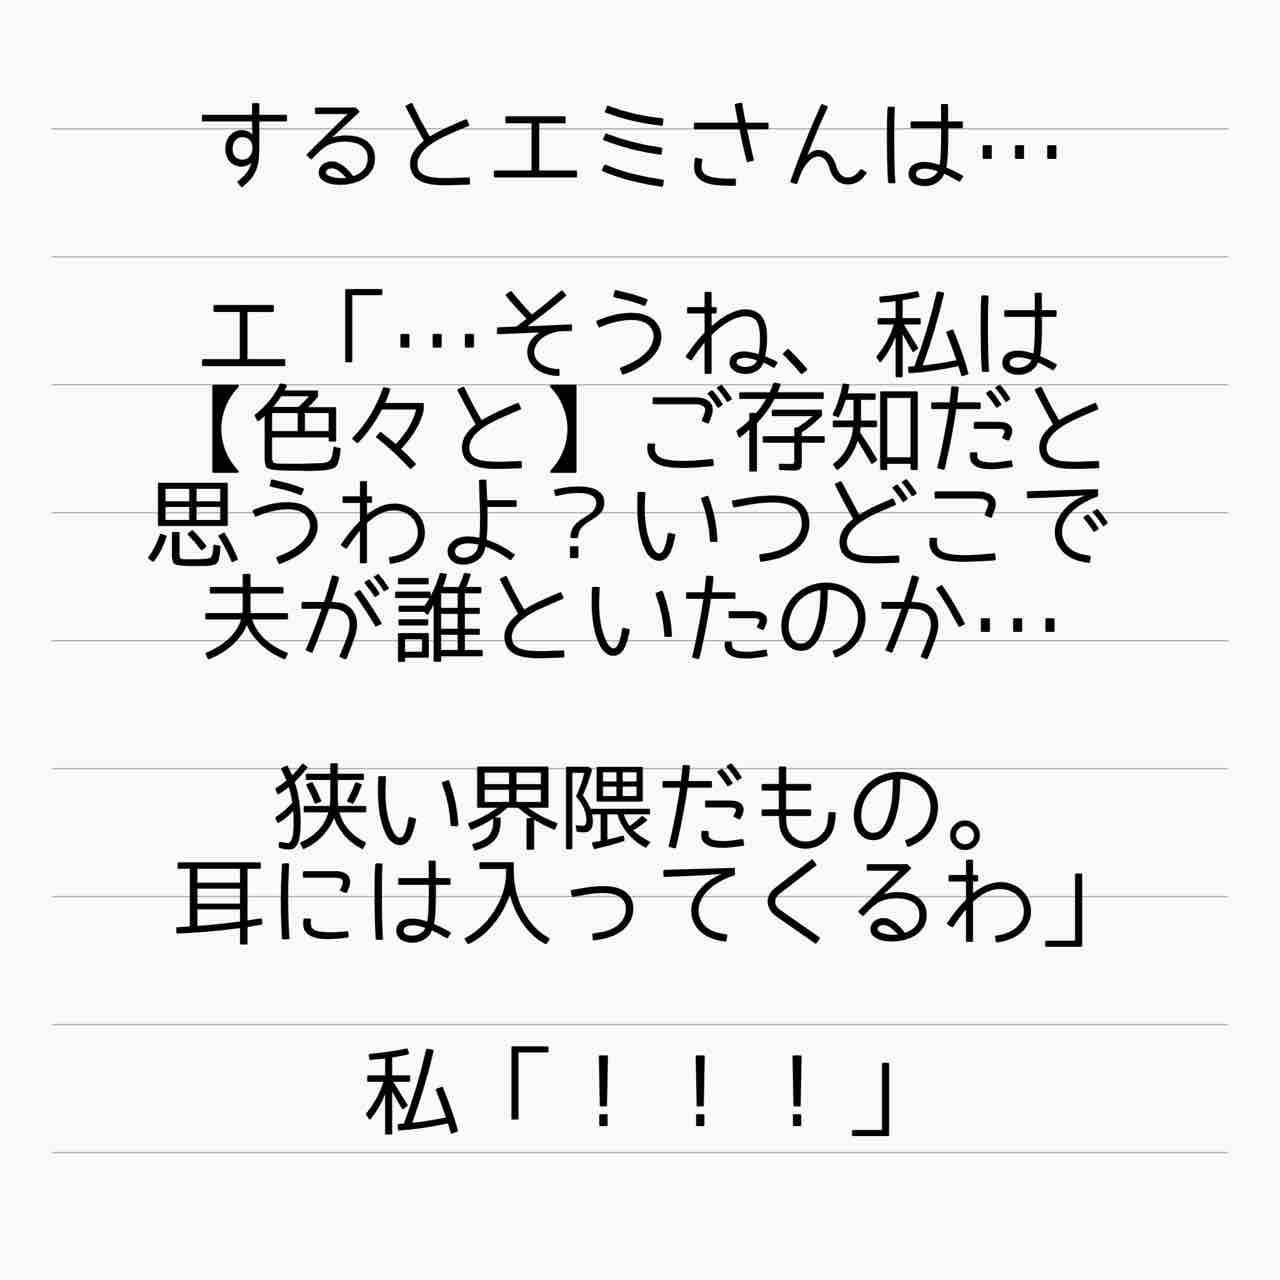 するとエミさんは…
エ「…そうね、私は
【色々と】ご存知だと
思うわよ？いつどこで
夫が誰といたのか…
狭い界隈だもの。
耳には入ってくるわ」
私「！！！」